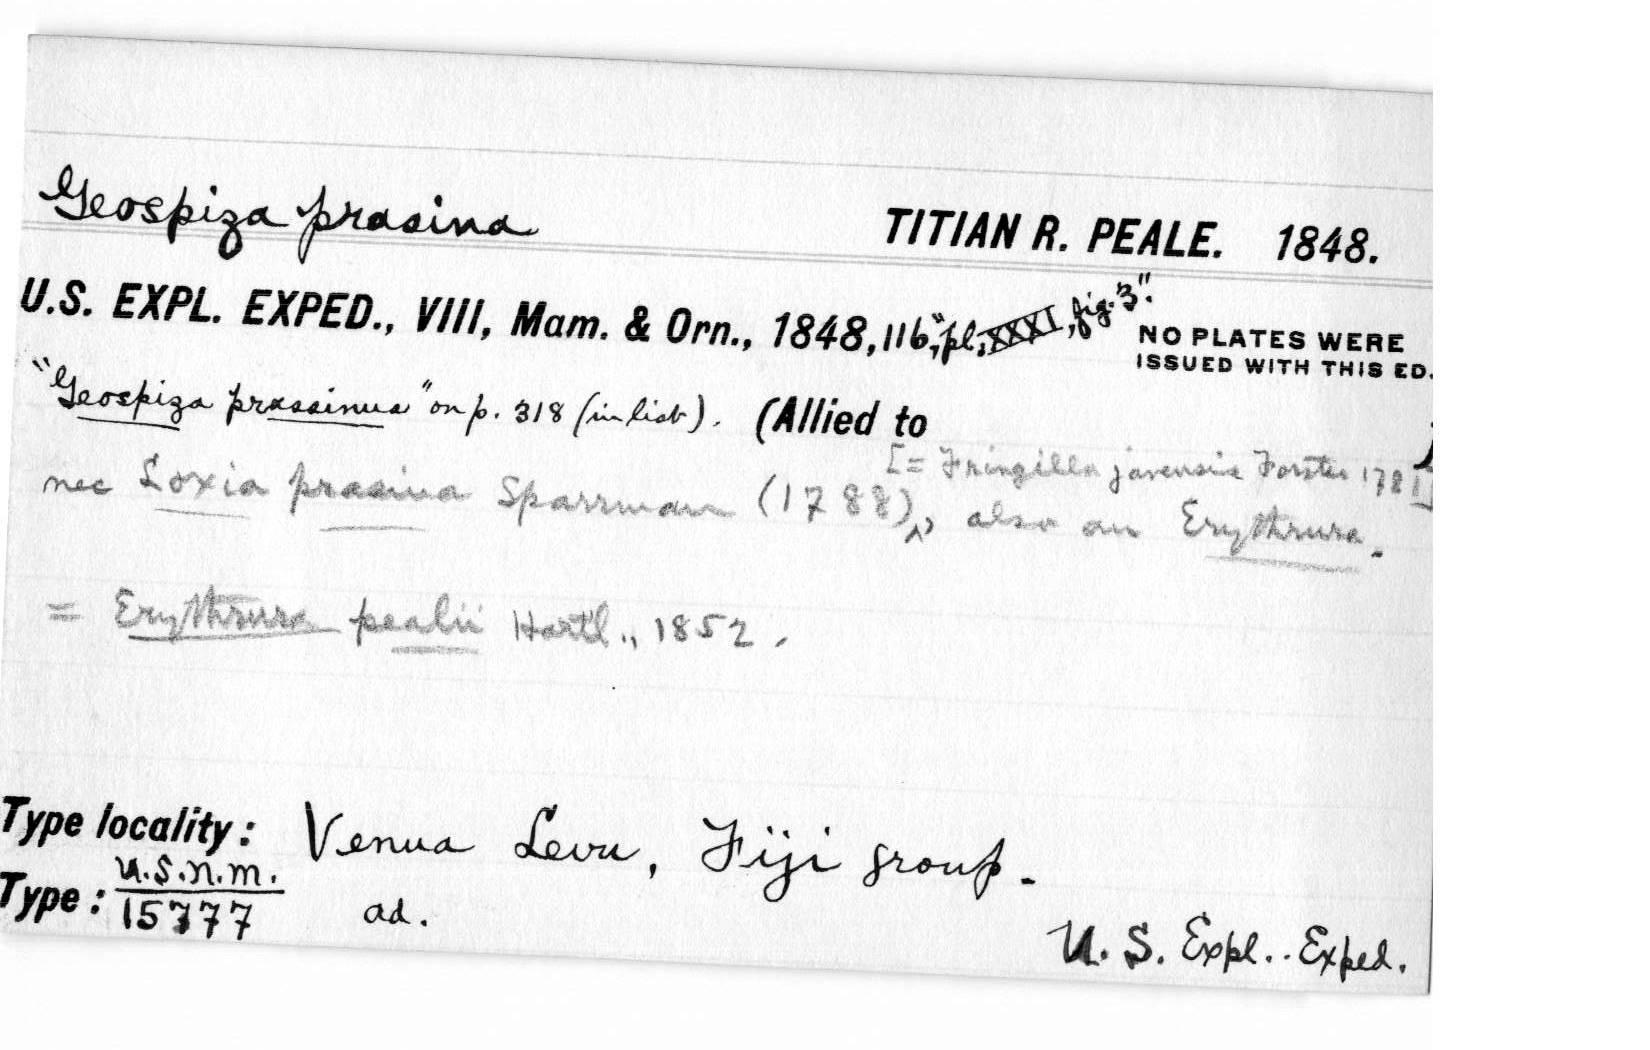 Geospiza prasina TITIAN R. PEALE. 1848.
U.S. EXPL. EXPED., VIII, Mam. & Orn., 1848, 116, "pl, XXXI, fig. 3". NO PLATES WERE
ISSUED WITH THIS ED.
"Geospiza prassinus" on p. 318 (in list). (Allied to )
[= Fringilla javensis Forster 1781]
nec Loxia prasina Sparrman (1788), also an Erythrura.
= Erythrura pealii Hartl., 1852.
Type locality: Venua Levu, Fiji group.
Type: U.S.N.M.
15777 ad.
U. S. Expl.. Exped.